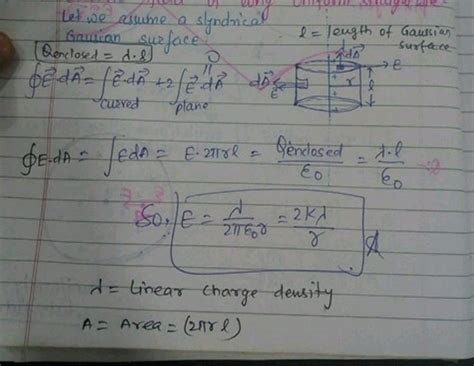 field of long uniform straight
Let we assume a slyndrical
Gausian surface
l = length of Gaussian
surface
Qenclosed = λ.l
∮E⃗.dA⃗ = ∫E⃗.dA⃗ + 2∫E⃗.dA⃗
curved plane
0
dA⃗
E
dA⃗
E
r
l
∮E.dA = ∫EdA = E.2πrl = Qenclosed/ε0 = λ.l/ε0
So, E = λ/2πε0r = 2Kλ/r
λ = Linear charge density
A = Area = (2πrl)